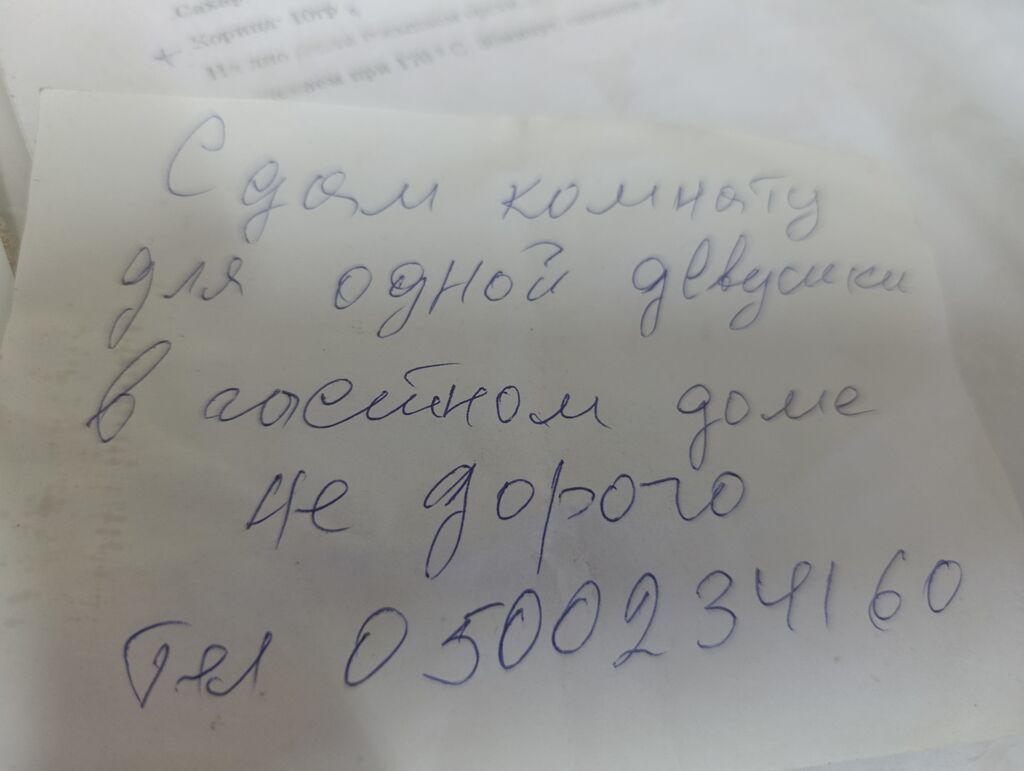 Сахар
+ Корица - 10гр
при 170°C,
Сдам комнату
для одной девушки
в гостином доме
не дорого
Тел 0500234160